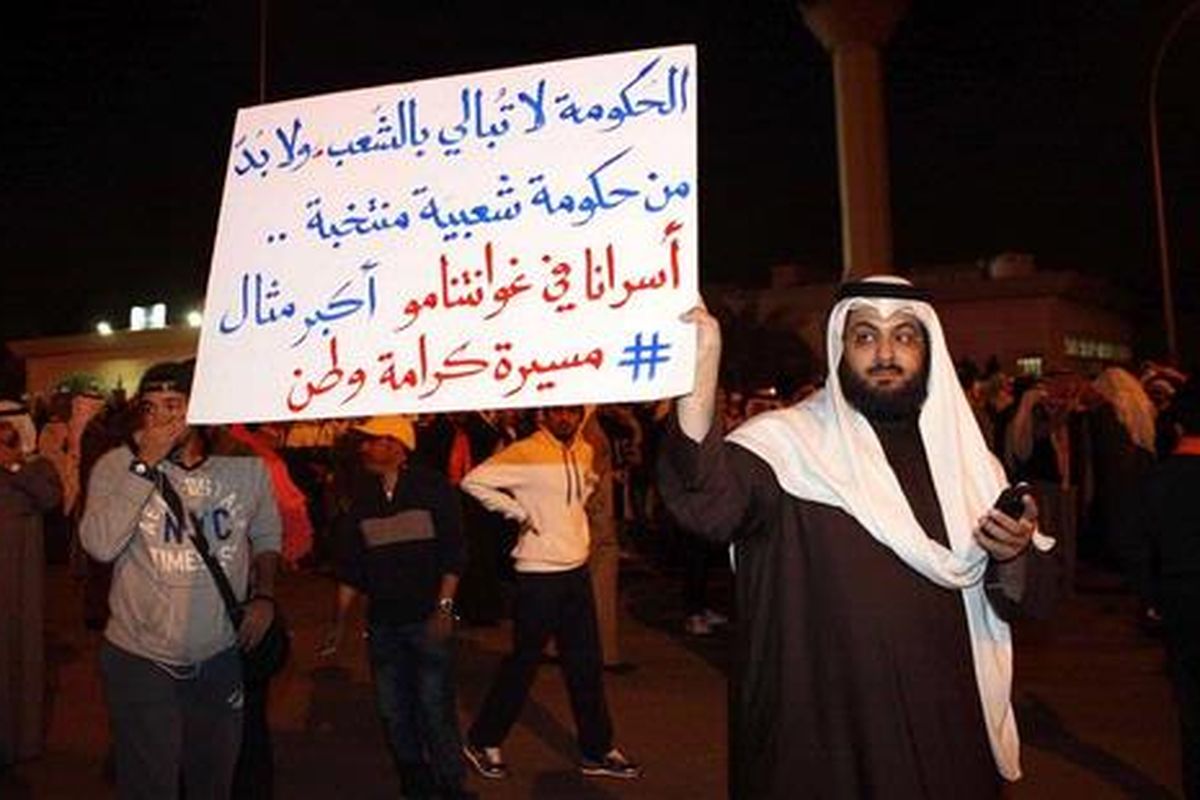 الحَكومة لا تُبالي بالشَعب ولا بُدَ
من حكومة شعبية منتخبة ..
أسرانا في غوانتنامو أكبر مثال
# مسيرة كرامة وطن
NYC
TIMES